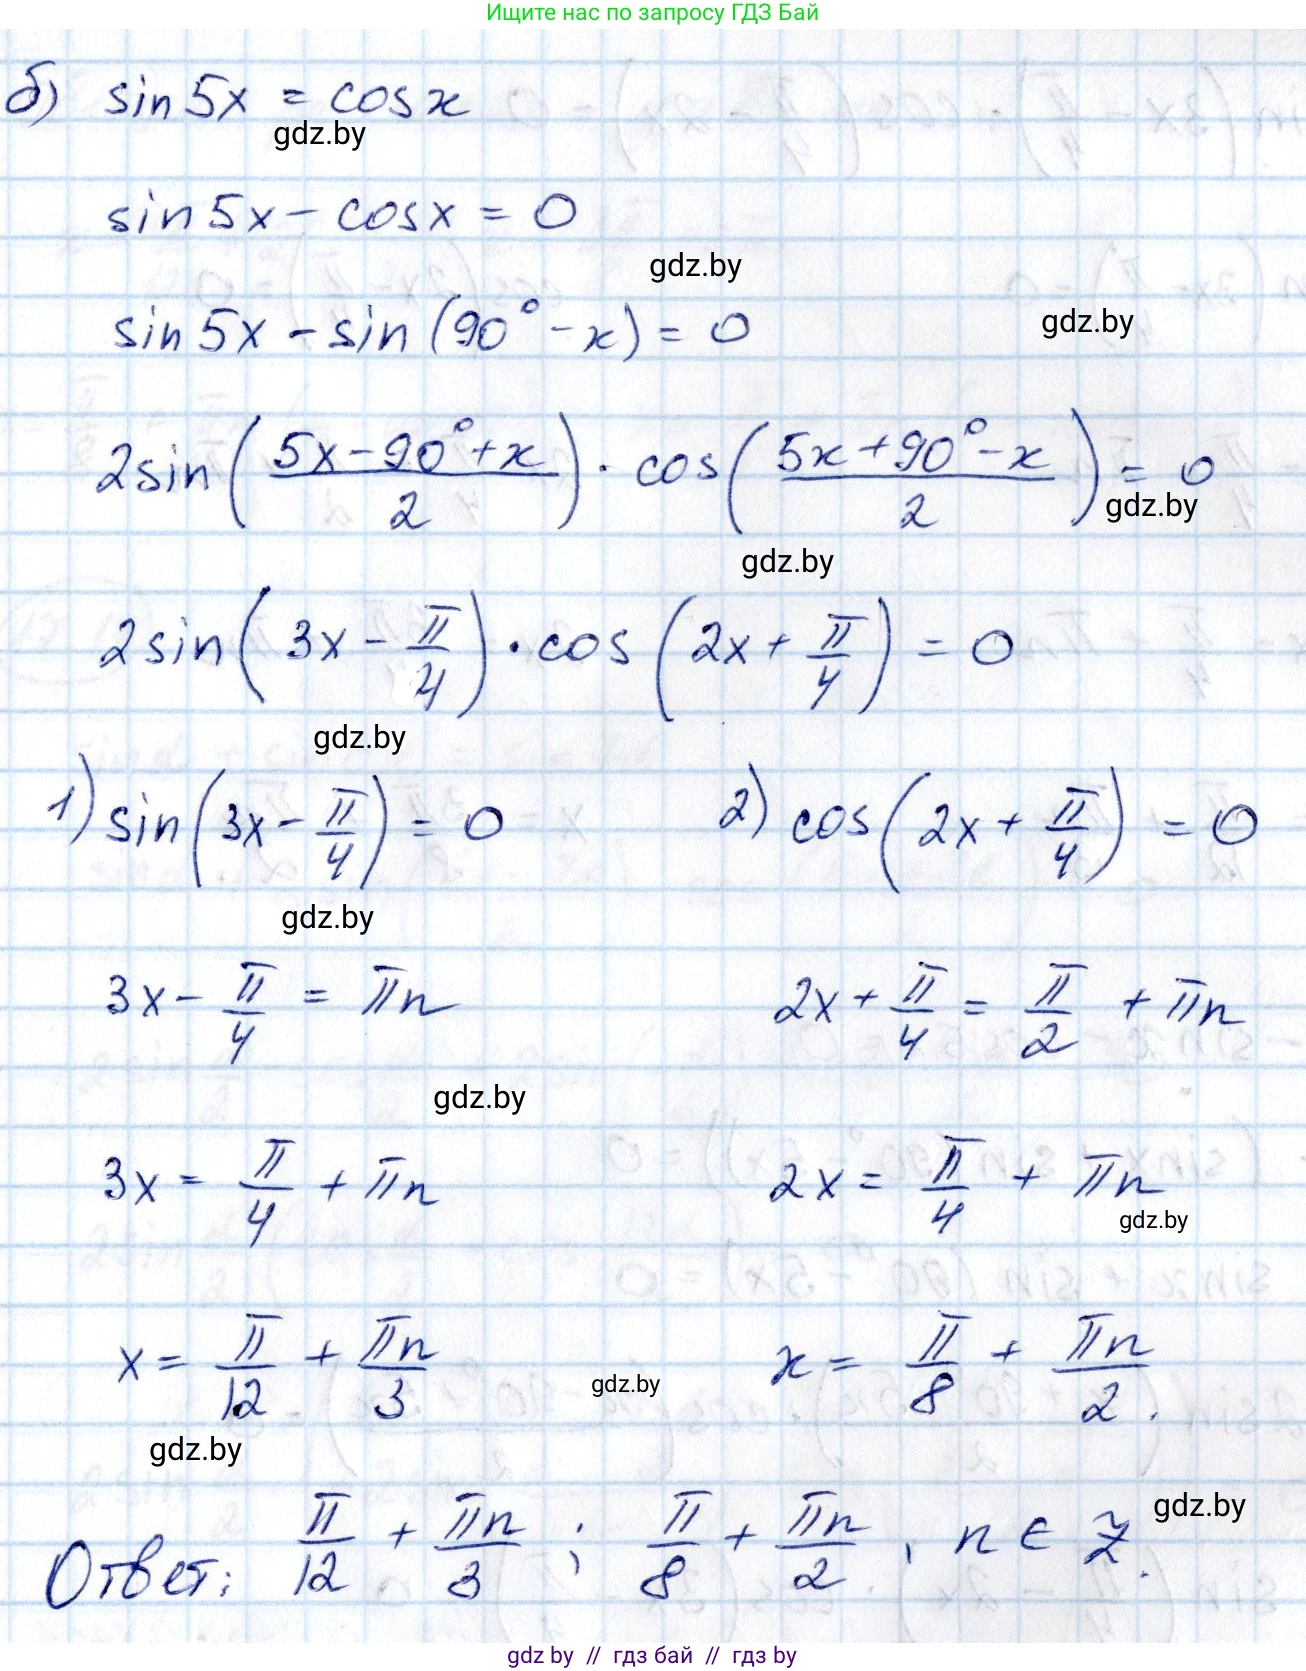 Ищите нас по запросу ГДЗ Бай
б) sin 5x = cos x
gdz.by
sin 5x - cos x = 0
gdz.by
sin 5x - sin (90° - x) = 0
gdz.by
2 sin ((5x - 90° + x)/2) · cos ((5x + 90° - x)/2) = 0
gdz.by
gdz.by
2 sin (3x - π/4) · cos (2x + π/4) = 0
gdz.by
1) sin (3x - π/4) = 0 2) cos (2x + π/4) = 0
gdz.by
3x - π/4 = πn 2x + π/4 = π/2 + πn
gdz.by
3x = π/4 + πn 2x = π/4 + πn
gdz.by
x = π/12 + πn/3 x = π/8 + πn/2.
gdz.by
gdz.by
gdz.by
Ответ: π/12 + πn/3 ; π/8 + πn/2, n ∈ Z.
gdz by // гдз бай // гдз by